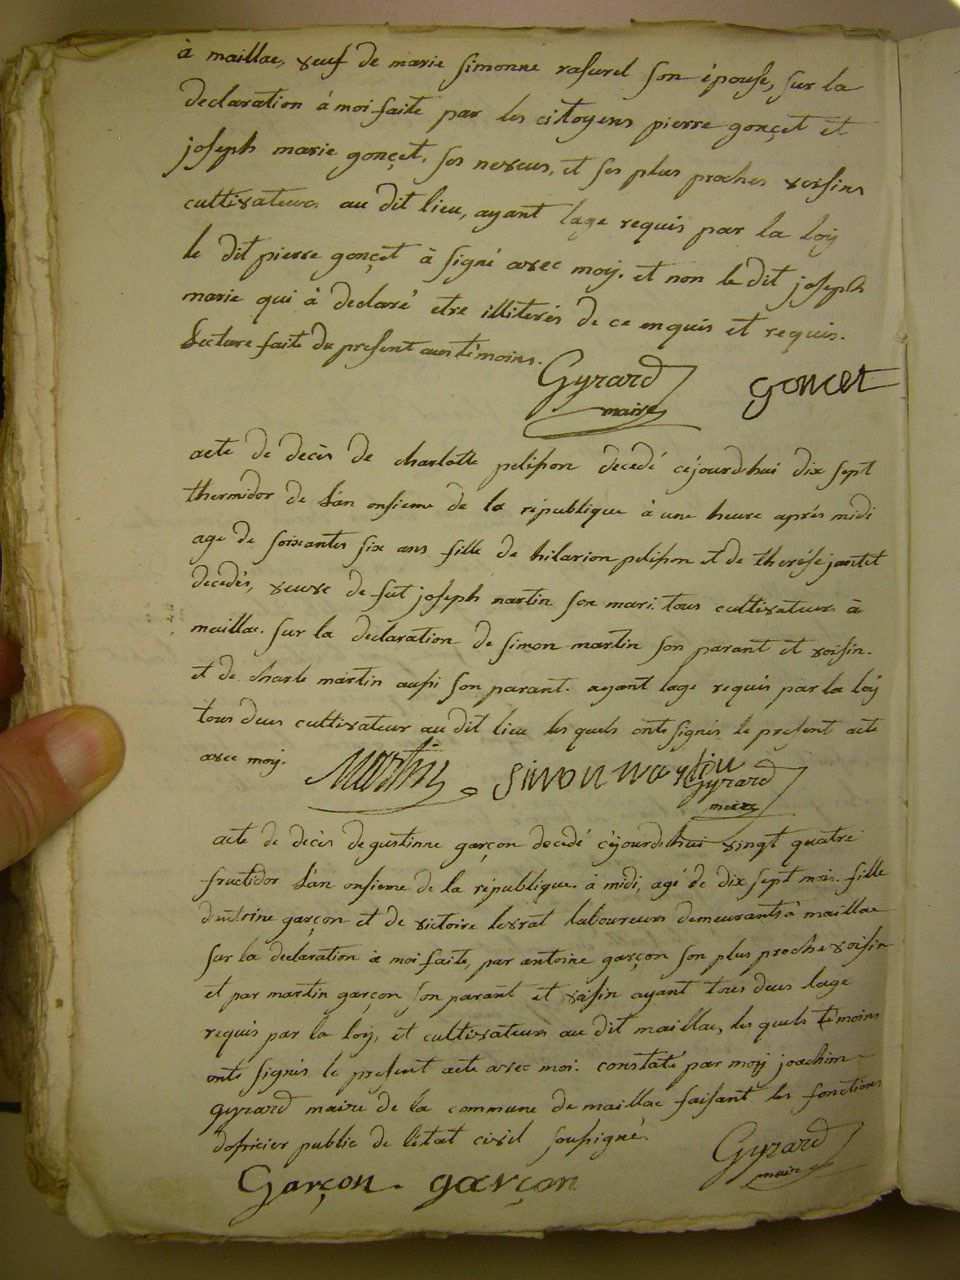 à maillac, veuf de marie simonne rafurel son épouse, sur la
declaration à moi faite par les citoyens pierre gonçet et
joseph marie gonçet, ses neveus, et ses plus proches voisins
cultivateurs au dit lieu, ayant lage requis par la loy
le dit pierre gonçet à signé avec moy. et non le dit joseph
marie qui à declaré etre illiterés de ce enquis et requis.
Lecture faite du present aux témoins.
Gyrard
maire
goncet
acte de décès de charlotte pelisson decedé cejourdhui dix sept
thermidor de l'an onsieme de la république à une heure après midi
age de soixantes six ans fille de hilarion pelisson et de therése jantet
decedés, veuve de fut joseph martin son mari. tous cultivateurs à
maillac. sur la declaration de simon martin son parant et voisin.
et de charle martin aussi son parant. ayant lage requis par la loy
tous deus cultivateur au dit lieu les quels onts signés le present acte
avec moy.
Martin
simon martin
Gyrard
maire
acte de décès de gustinne garçon decedé cejourdhui vingt quatre
fructidor l'an onsieme de la république à midi, agé de dix sept mois. fille
garçon et de victoire levrat laboureurs demeurants à maillac
sur la declaration à moi faite, par antoine garçon son plus proche voisin
et par martin garçon son parant et voisin ayant tous deus lage
requis par la loy, et cultivateurs au dit maillac, les quels témoins
onts signés le present acte avec moi. constaté par moy joachim
gyrard maire de la commune de maillac faisant les fonctions
doficier public de l'état civil soussigné.
Gyrard
maire
Garçon. garçon